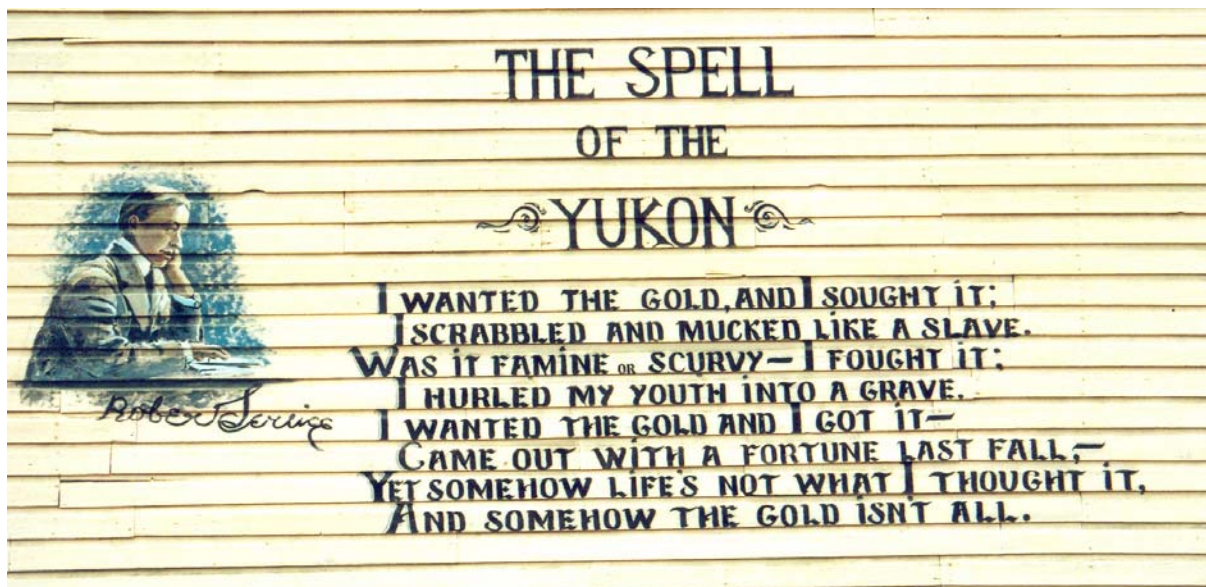 THE SPELL
OF THE
YUKON
I WANTED THE GOLD, AND I SOUGHT IT;
I SCRABBLED AND MUCKED LIKE A SLAVE.
WAS IT FAMINE OR SCURVY— I FOUGHT IT;
I HURLED MY YOUTH INTO A GRAVE.
I WANTED THE GOLD AND I GOT IT—
CAME OUT WITH A FORTUNE LAST FALL,—
YET SOMEHOW LIFE'S NOT WHAT I THOUGHT IT,
AND SOMEHOW THE GOLD ISNT ALL.
Robert Service